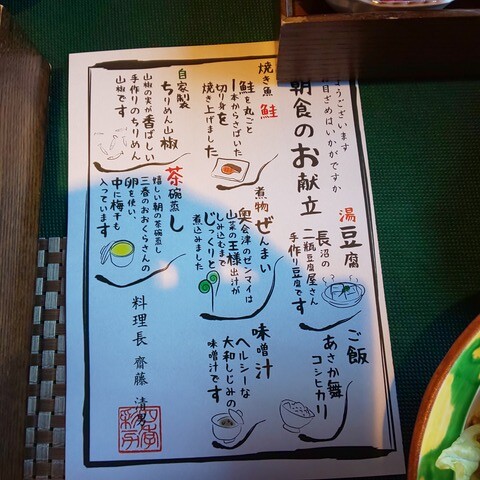 ようございます
お目ざめはいかがですか
朝食のお献立
湯豆腐
長沼の
二瓶豆腐屋さん
手作り豆腐です
ご飯
あさか舞
コシヒカリ
焼き魚 鮭
鮭を丸ごと
1本からさばいた
切り身を
焼き上げました
煮物 ぜんまい
奥会津のゼンマイは
山菜の王様 出汁が
しみ込むまで
じっくりと
煮込みました
味噌汁
ヘルシーな
大和しじみの
味噌汁です
自家製
ちりめん山椒
山椒の実が香ばしい
手作りのちりめん
山椒です
茶碗蒸し
嬉しい朝の茶碗蒸し
三春のおおくらさんの
卵を使い、
中に梅干も
入っています
料理長 齋藤 清